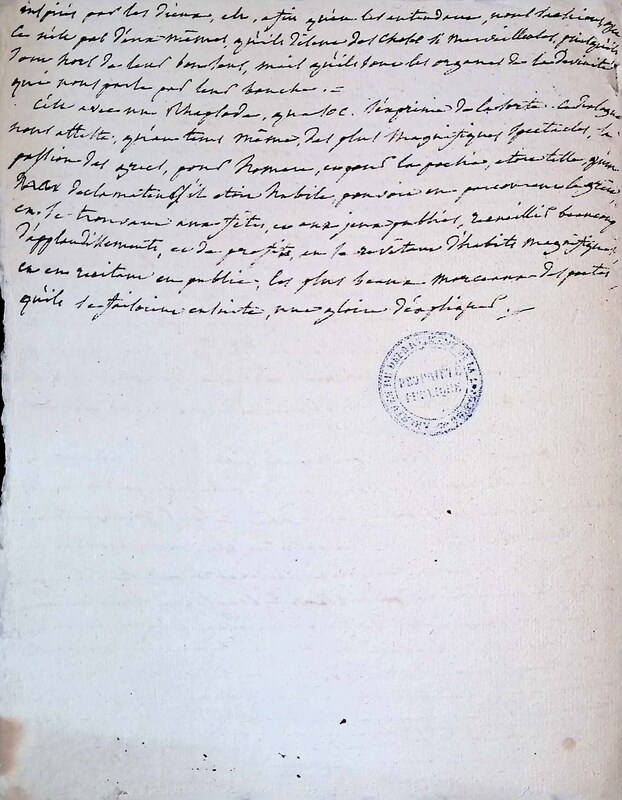 inspirés par les Dieux, etc, afin qu'en les entendant, nous sachions, que
Ce n'est pas d'eux mêmes, qu'ils disent des choses si merveilleuses, puisqu'ils
sont hors de leur bon sens, mais qu'ils sont les organes de la divinité
qui nous parle par leur bouche. =
C'est avec un Rhapsode, que Soc. s'exprime de la sorte. Ce dialogue
nous atteste, qu'au tems même, des plus magnifiques spectacles, la
passion des grecs, pour Homere, et pour la poësie, etoit telle, qu'un
declamateur, s'il etoit habile, pouvoit en parcourant la grèce
en se trouvant aux fêtes, et aux jeux publics, recueillir beaucoup
d'applaudissements, et de profits, en se revêtant d'habits magnifiques
et en recitant en public, les plus beaux morceaux des poetes
qu'ils se faisoient ensuite, une gloire d'expliquer. /.
ARCHIVES DU DEPARTEMENT DE LA
PROPRIÉTÉ
PUBLIQUE